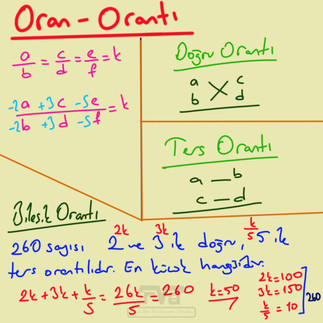 Oran - Orantı
a/b = c/d = e/f = k
-2a +3c -5e / -2b +3d -5f = k
Doğru Orantı
a c
b d
Ters Orantı
a — b
c — d
Bileşik Orantı
2k 3k k/5
260 sayısı 2 ve 3 ile doğru, 5 ile
ters orantılıdır. En küçük hangisidir.
2k + 3k + k/5 = 26k/5 = 260 k = 50
2k = 100
3k = 150
k/5 = 10
260